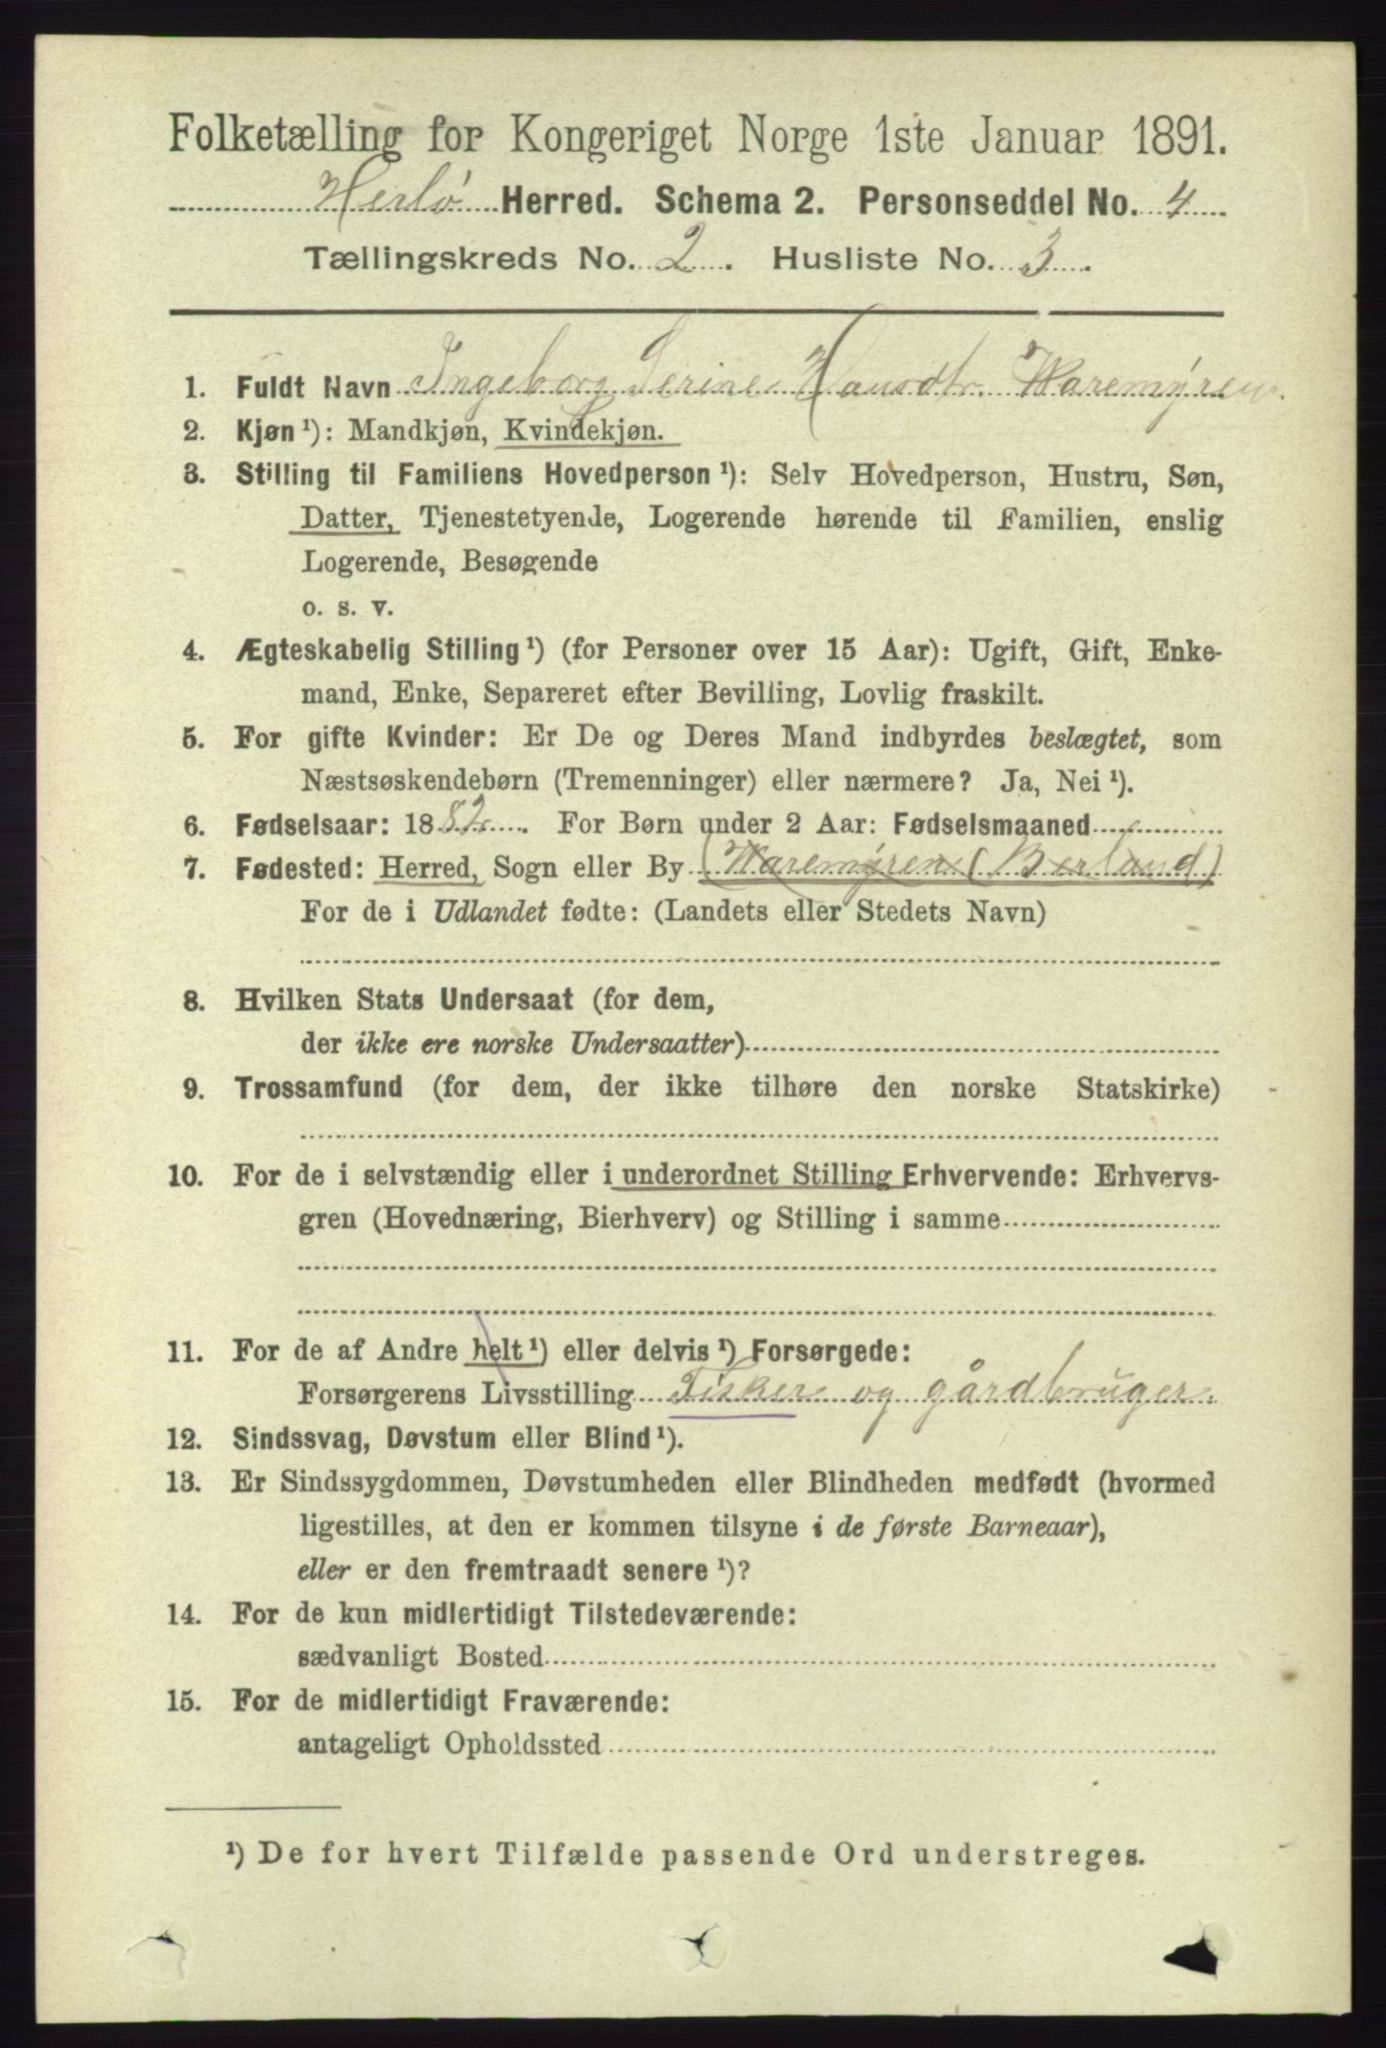 Folketælling for Kongeriget Norge 1ste Januar 1891.
Herlø Herred. Schema 2. Personseddel No. 4
Tællingskreds No. 2. Husliste No. 3.
1. Fuldt Navn Ingeborg Serine Hansdtr. Waremyren.
2. Kjøn ¹): Mandkjøn, Kvindekjøn.
3. Stilling til Familiens Hovedperson ¹): Selv Hovedperson, Hustru, Søn,
Datter, Tjenestetyende, Logerende hørende til Familien, enslig
Logerende, Besøgende
o. s. v.
4. Ægteskabelig Stilling ¹) (for Personer over 15 Aar): Ugift, Gift, Enke-
mand, Enke, Separeret efter Bevilling, Lovlig fraskilt.
5. For gifte Kvinder: Er De og Deres Mand indbyrdes beslægtet, som
Næstsøskendebørn (Tremenninger) eller nærmere? Ja, Nei ¹).
6. Fødselsaar: 1882. For Børn under 2 Aar: Fødselsmaaned
7. Fødested: Herred, Sogn eller By (Waremyren (Berland)
For de i Udlandet fødte: (Landets eller Stedets Navn)
8. Hvilken Stats Undersaat (for dem,
der ikke ere norske Undersaatter)
9. Trossamfund (for dem, der ikke tilhøre den norske Statskirke)
10. For de i selvstændig eller i underordnet Stilling Erhvervende: Erhvervs-
gren (Hovednæring, Bierhverv) og Stilling i samme
11. For de af Andre helt ¹) eller delvis ¹) Forsørgede:
Forsørgerens Livsstilling Fisker og gårdbruger.
12. Sindssvag, Døvstum eller Blind ¹).
13. Er Sindssygdommen, Døvstumheden eller Blindheden medfødt (hvormed
ligestilles, at den er kommen tilsyne i de første Barneaar),
eller er den fremtraadt senere ¹)?
14. For de kun midlertidigt Tilstedeværende:
sædvanligt Bosted
15. For de midlertidigt Fraværende:
antageligt Opholdssted
¹) De for hvert Tilfælde passende Ord understreges.